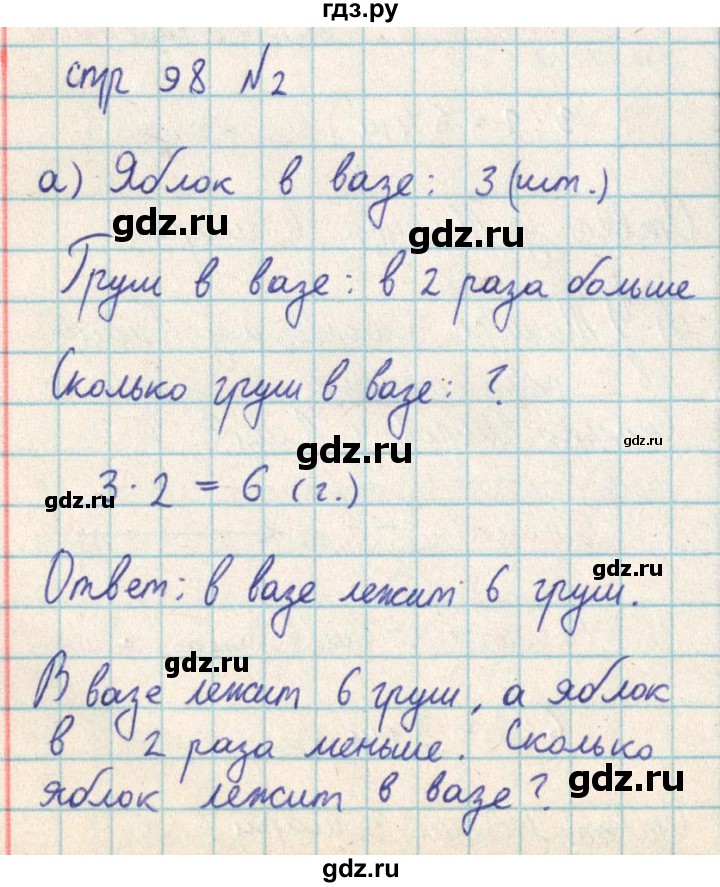 гдз.ру
стр 98 №2
а) Яблок в вазе: 3 (шт.)
gdz.ru
gdz.ru
Груш в вазе: в 2 раза больше
Сколько груш в вазе: ?
gdz.ru
gdz.ru
3 · 2 = 6 (г.)
gdz.ru
Ответ: в вазе лежит 6 груш.
gdz.ru
gdz.ru
В вазе лежит 6 груш, а яблок
в 2 раза меньше. Сколько
gdz.ru
яблок лежит в вазе?
gdz.ru